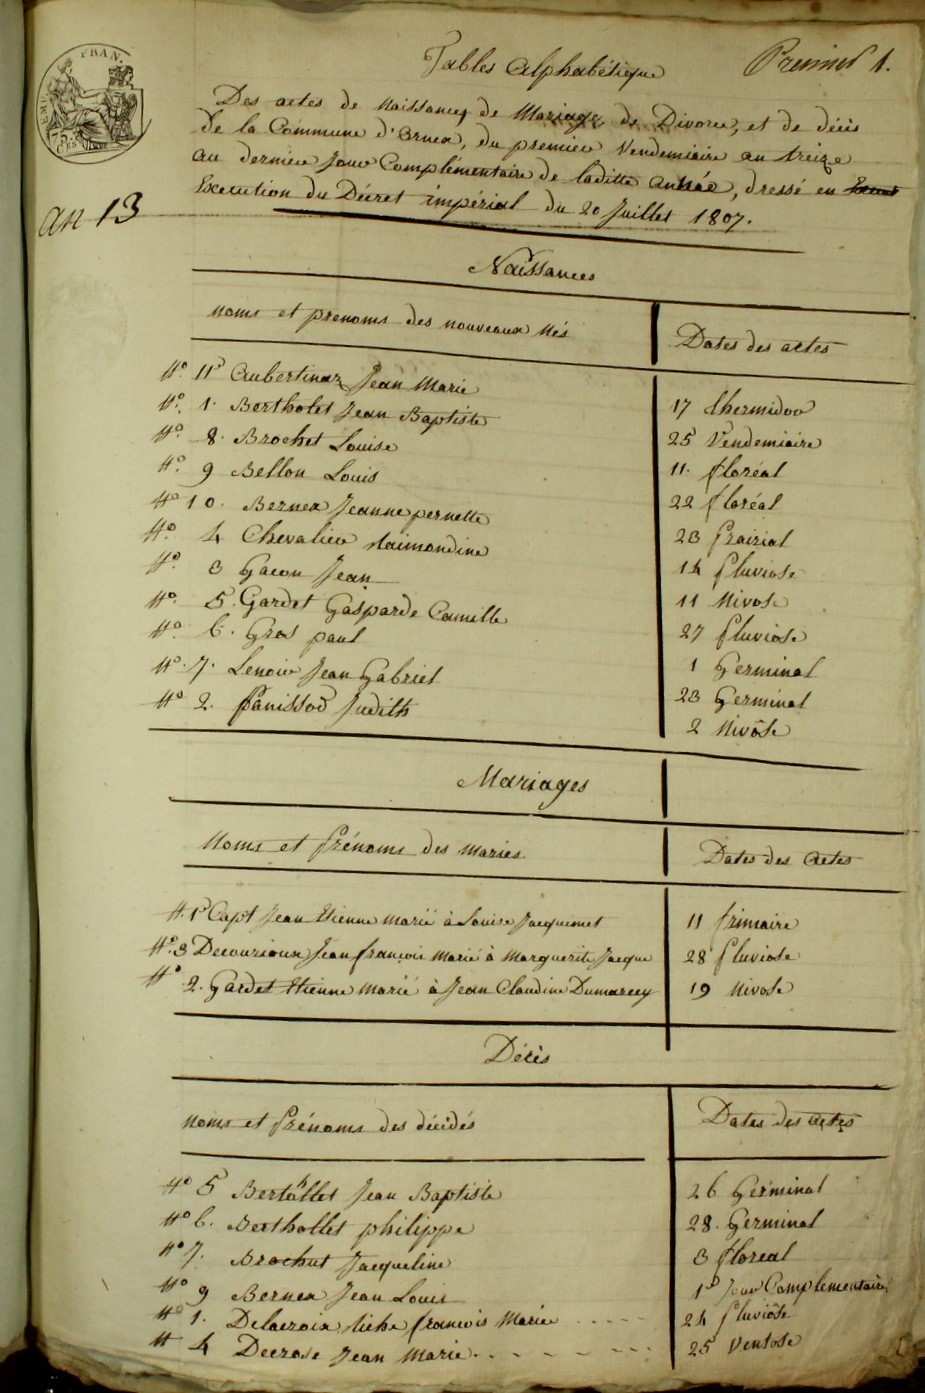 Tables Alphabétique
Premier 1.
Des actes de Naissances de Mariage de Divorce, et de décès
de la Commune d'Ornex, du premier Vendemiaire an treize
au dernier Jour Complémentaire de laditte année, dressé en
Execution du Décret impérial du 20 Juillet 1807.
an 13
Naissances
noms et prenoms des nouveaux Nés
Dates des actes
No. 11 Aubertinaz Jean Marie
17 thermidor
No. 1. Bertholet Jean Baptiste
25 Vendemiaire
No. 8. Brochet Louise
11. floréal
No. 9 Bellon Louis
22 floréal
No 10. Bernex Jeanne pernette
23 Prairial
No. 4 Chevalier Raimondine
14 Pluviose
No. 3 Gacon Jean
11 Nivose
No. 5. Gardet Gasparde Camille
27 Pluviôse
No. 6. Gros paul
1 Germinal
No. 7. Lenoir Jean Gabriel
23 Germinal
No 2. Panissod Judith
2 Nivôse
Mariages
Noms et Prénoms des mariés
Dates des actes
N. 1er Capt Jean Etienne marié à Louise Jacquemet
11 frimaire
No. 3 Decourioux Jean françois marié à Marguerite Jacque
28 Pluviose
No 2. Gardet Etienne marié à Jean Claudine Dumarcey
19 Nivose
Décès
noms et Prénoms des décédés
Dates des actes
No 5 Bertallet Jean Baptiste
26 Germinal
No 6. Berthollet philippe
28. Germinal
No 7. Brochut Jacqueline
3 floreal
No 9 Bernex Jean Louis
1er Jour Complementaire
No 1. Delacroix françois Marie
24 Pluviôse
N 4 Decrose Jean Marie
25 Ventose